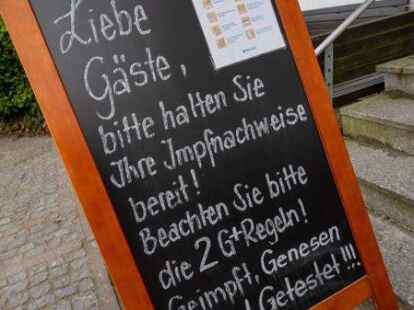 Liebe
Gäste,
bitte halten Sie
Ihre Impfnachweise
bereit!
Beachten Sie bitte
die 2G+Regeln!
Geimpft, Genesen
Getestet!!!